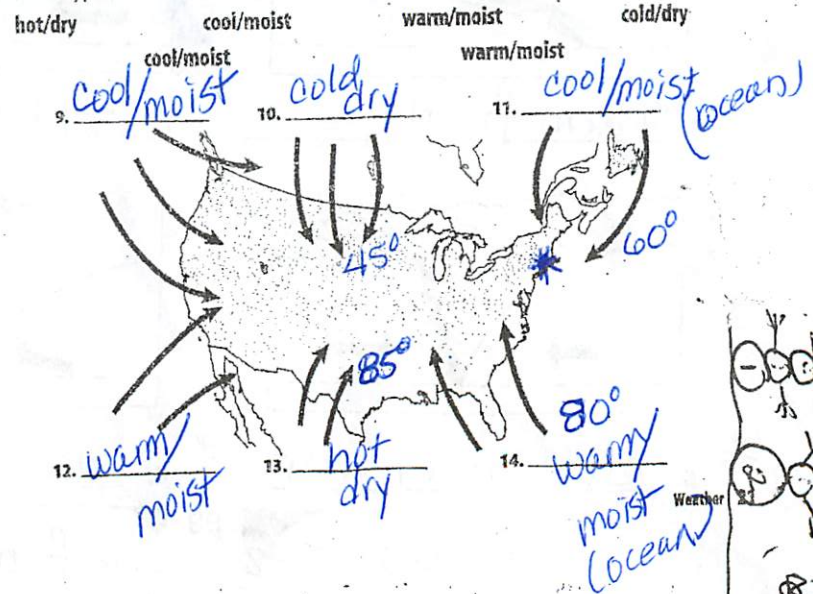 hot/dry cool/moist warm/moist cold/dry
cool/moist warm/moist
9. cool/moist 10. cold dry 11. cool/moist (ocean)
60°
45°
85°
80°
12. warm/ moist 13. hot dry 14. warm/ moist (ocean)
Weather